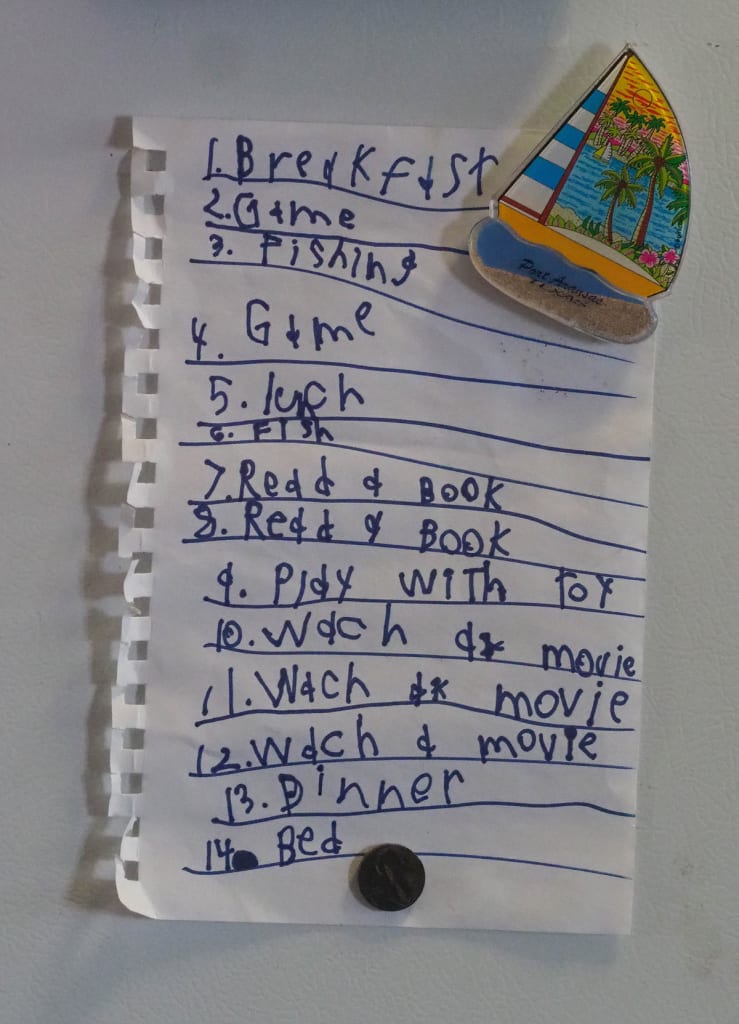 1. Breakfast
2. Game
3. Fishing
4. Game
5. luch
6. Fish
7. Read a Book
8. Read a Book
9. Play with Toy
10. Wach a movie
11. Wach a movie
12. Wach a movie
13. Dinner
14. Bed
Port Aransas
Texas